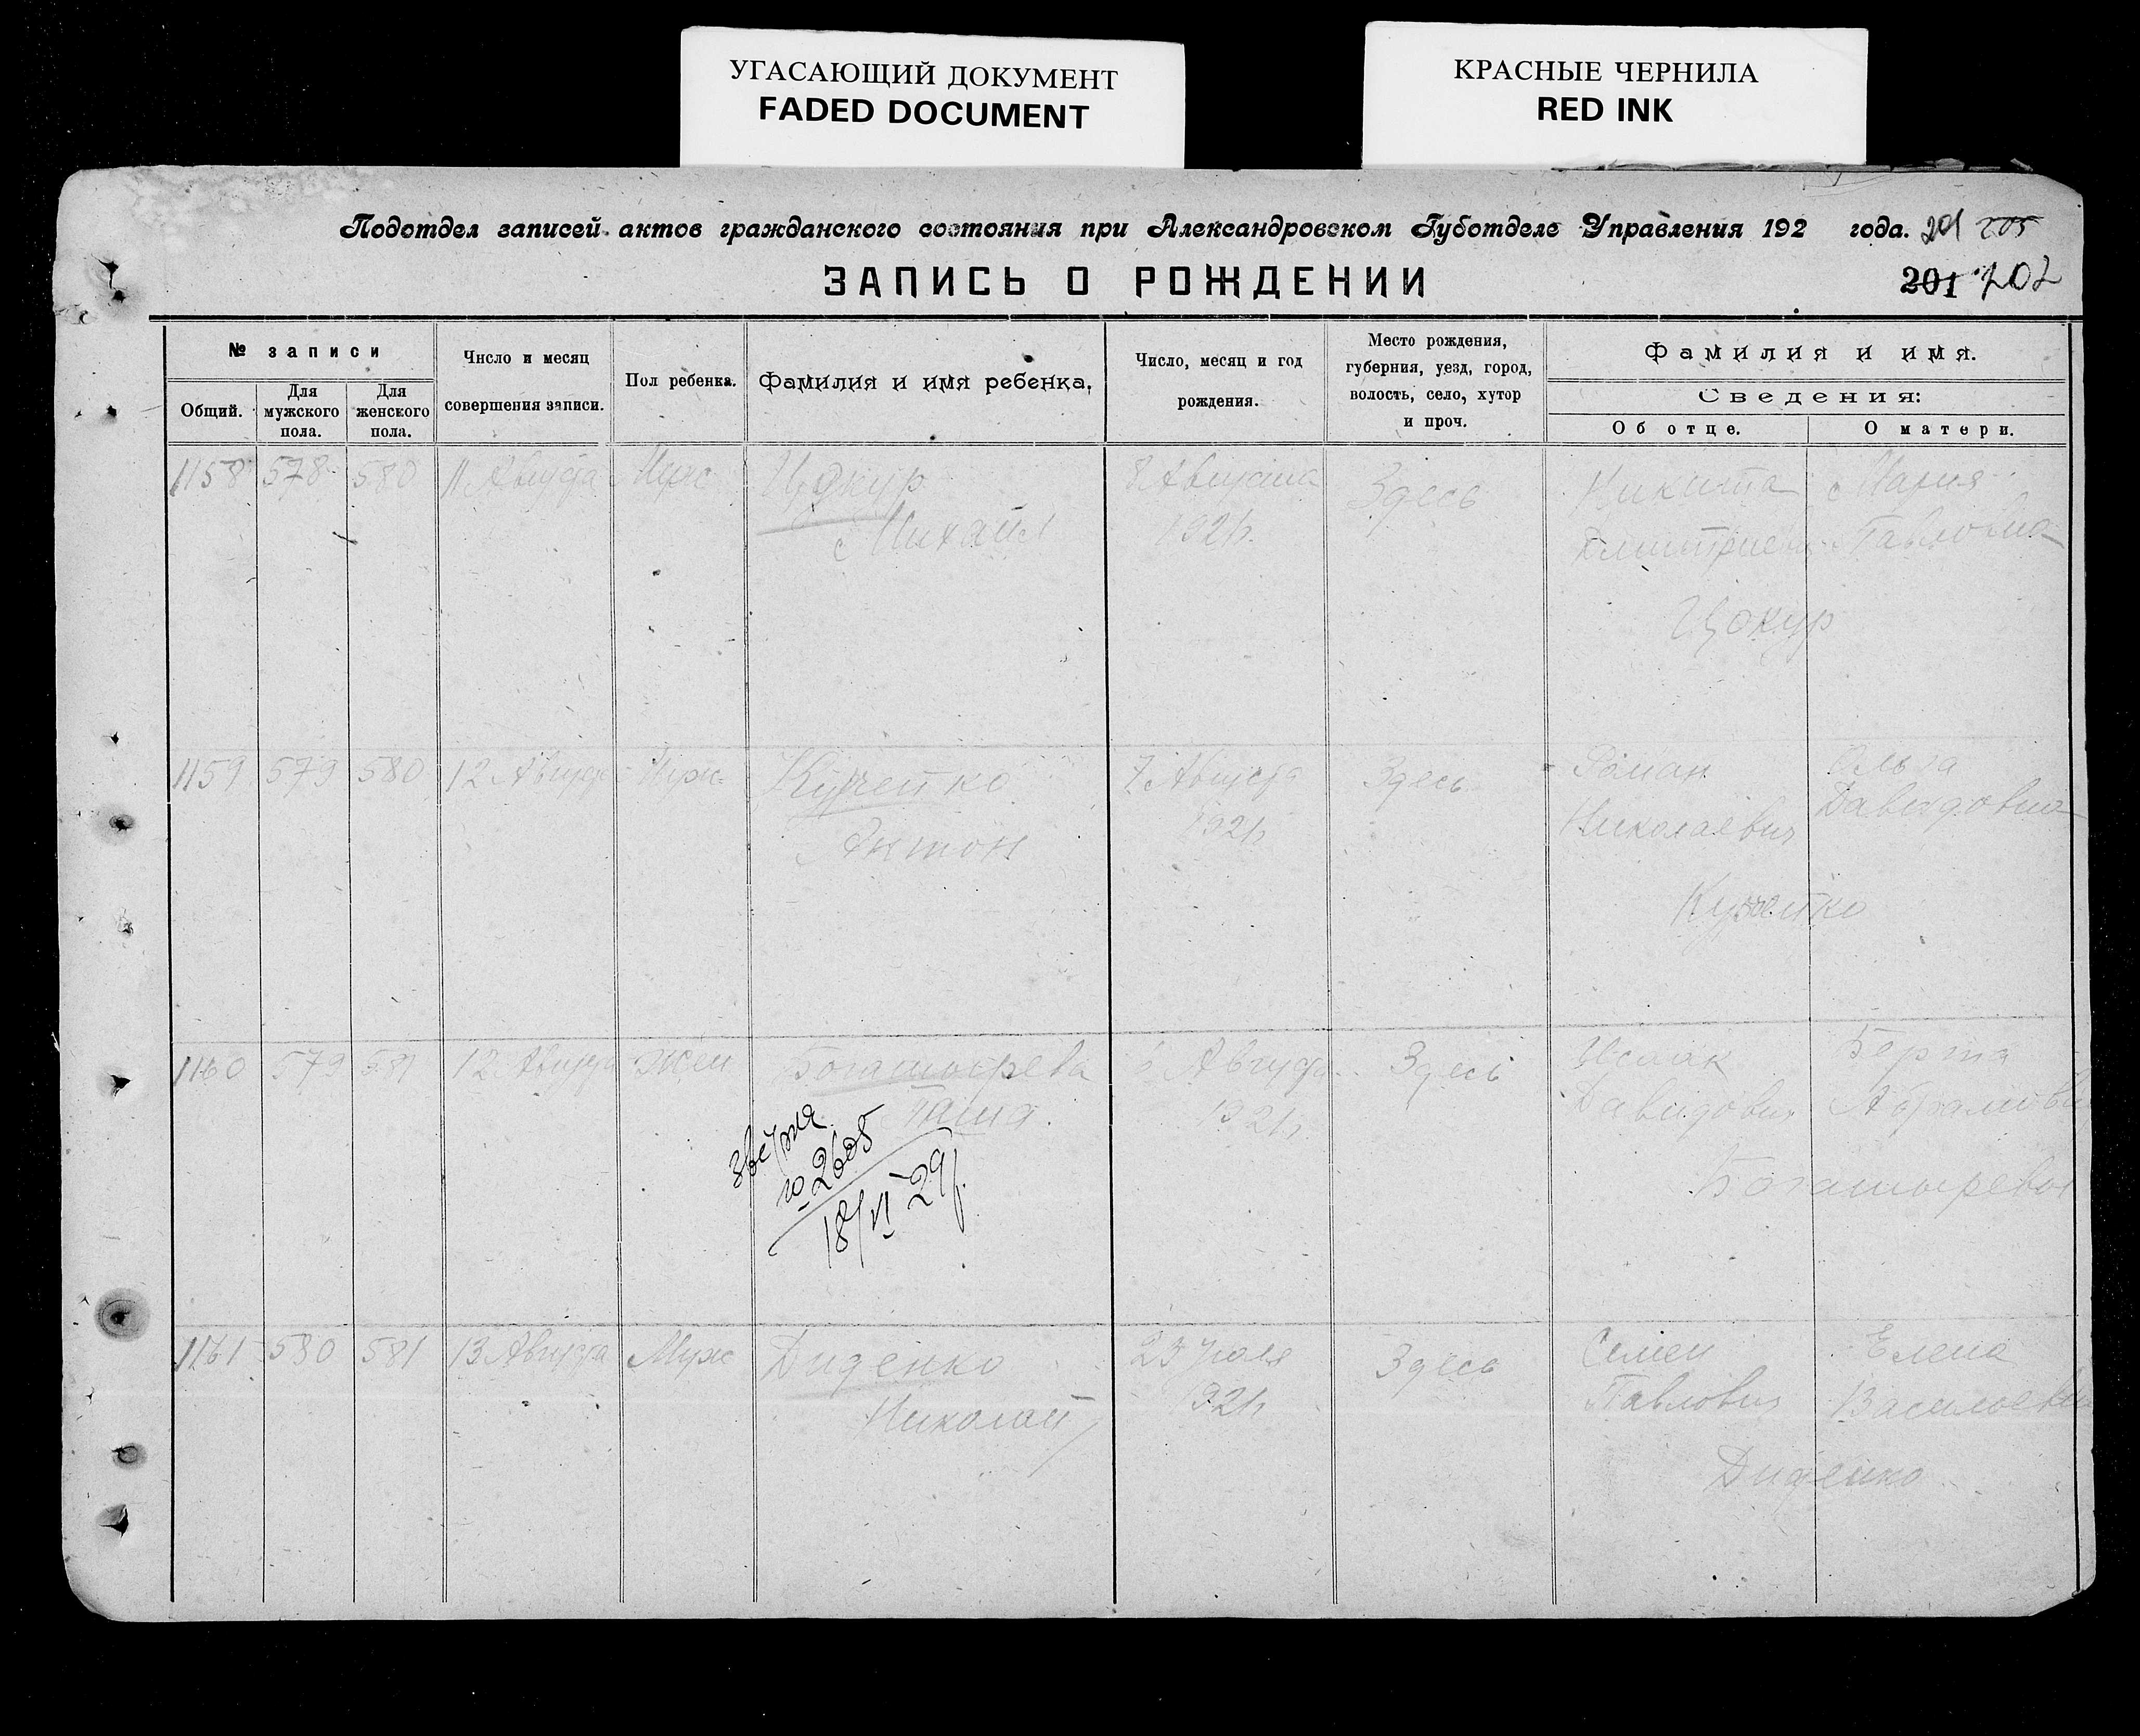 УГАСАЮЩИЙ ДОКУМЕНТ
FADED DOCUMENT
КРАСНЫЕ ЧЕРНИЛА
RED INK
Подотдел записей актов гражданского состояния при Александровском Губотделе Управления 192 года. 201 205
ЗАПИСЬ О РОЖДЕНИИ
201 202
№ записи
Общий.
Для мужского пола.
Для женского пола.
Число и месяц
совершения записи.
Пол ребенка.
Фамилия и имя ребенка.
Число, месяц и год
рождения.
Место рождения,
губерния, уезд, город,
волость, село, хутор
и проч.
Фамилия и имя.
Сведения:
Об отце.
О матери.
1158 578 580 11 Августа Муж Цокур 8 Августа Здесь Никита Мария
Михаил 1921г. Дмитриевич Павловна
Цокур
1159 579 580 12 Августа Муж 7 Августа Здесь Роман Ольга
Антон 1921г. Николаевич Давидовна
1160 579 581 12 Августа Жен Богатырева 6 Августа Здесь Исаак Берта
1921г. Давидович Абрамовна
Богатыревы
№ 2605
18/VI 29г.
1161 580 581 13 Августа Муж Диденко 23 Июля Здесь Семен Елена
Николай 1921г. Павлович Васильевна
Диденко